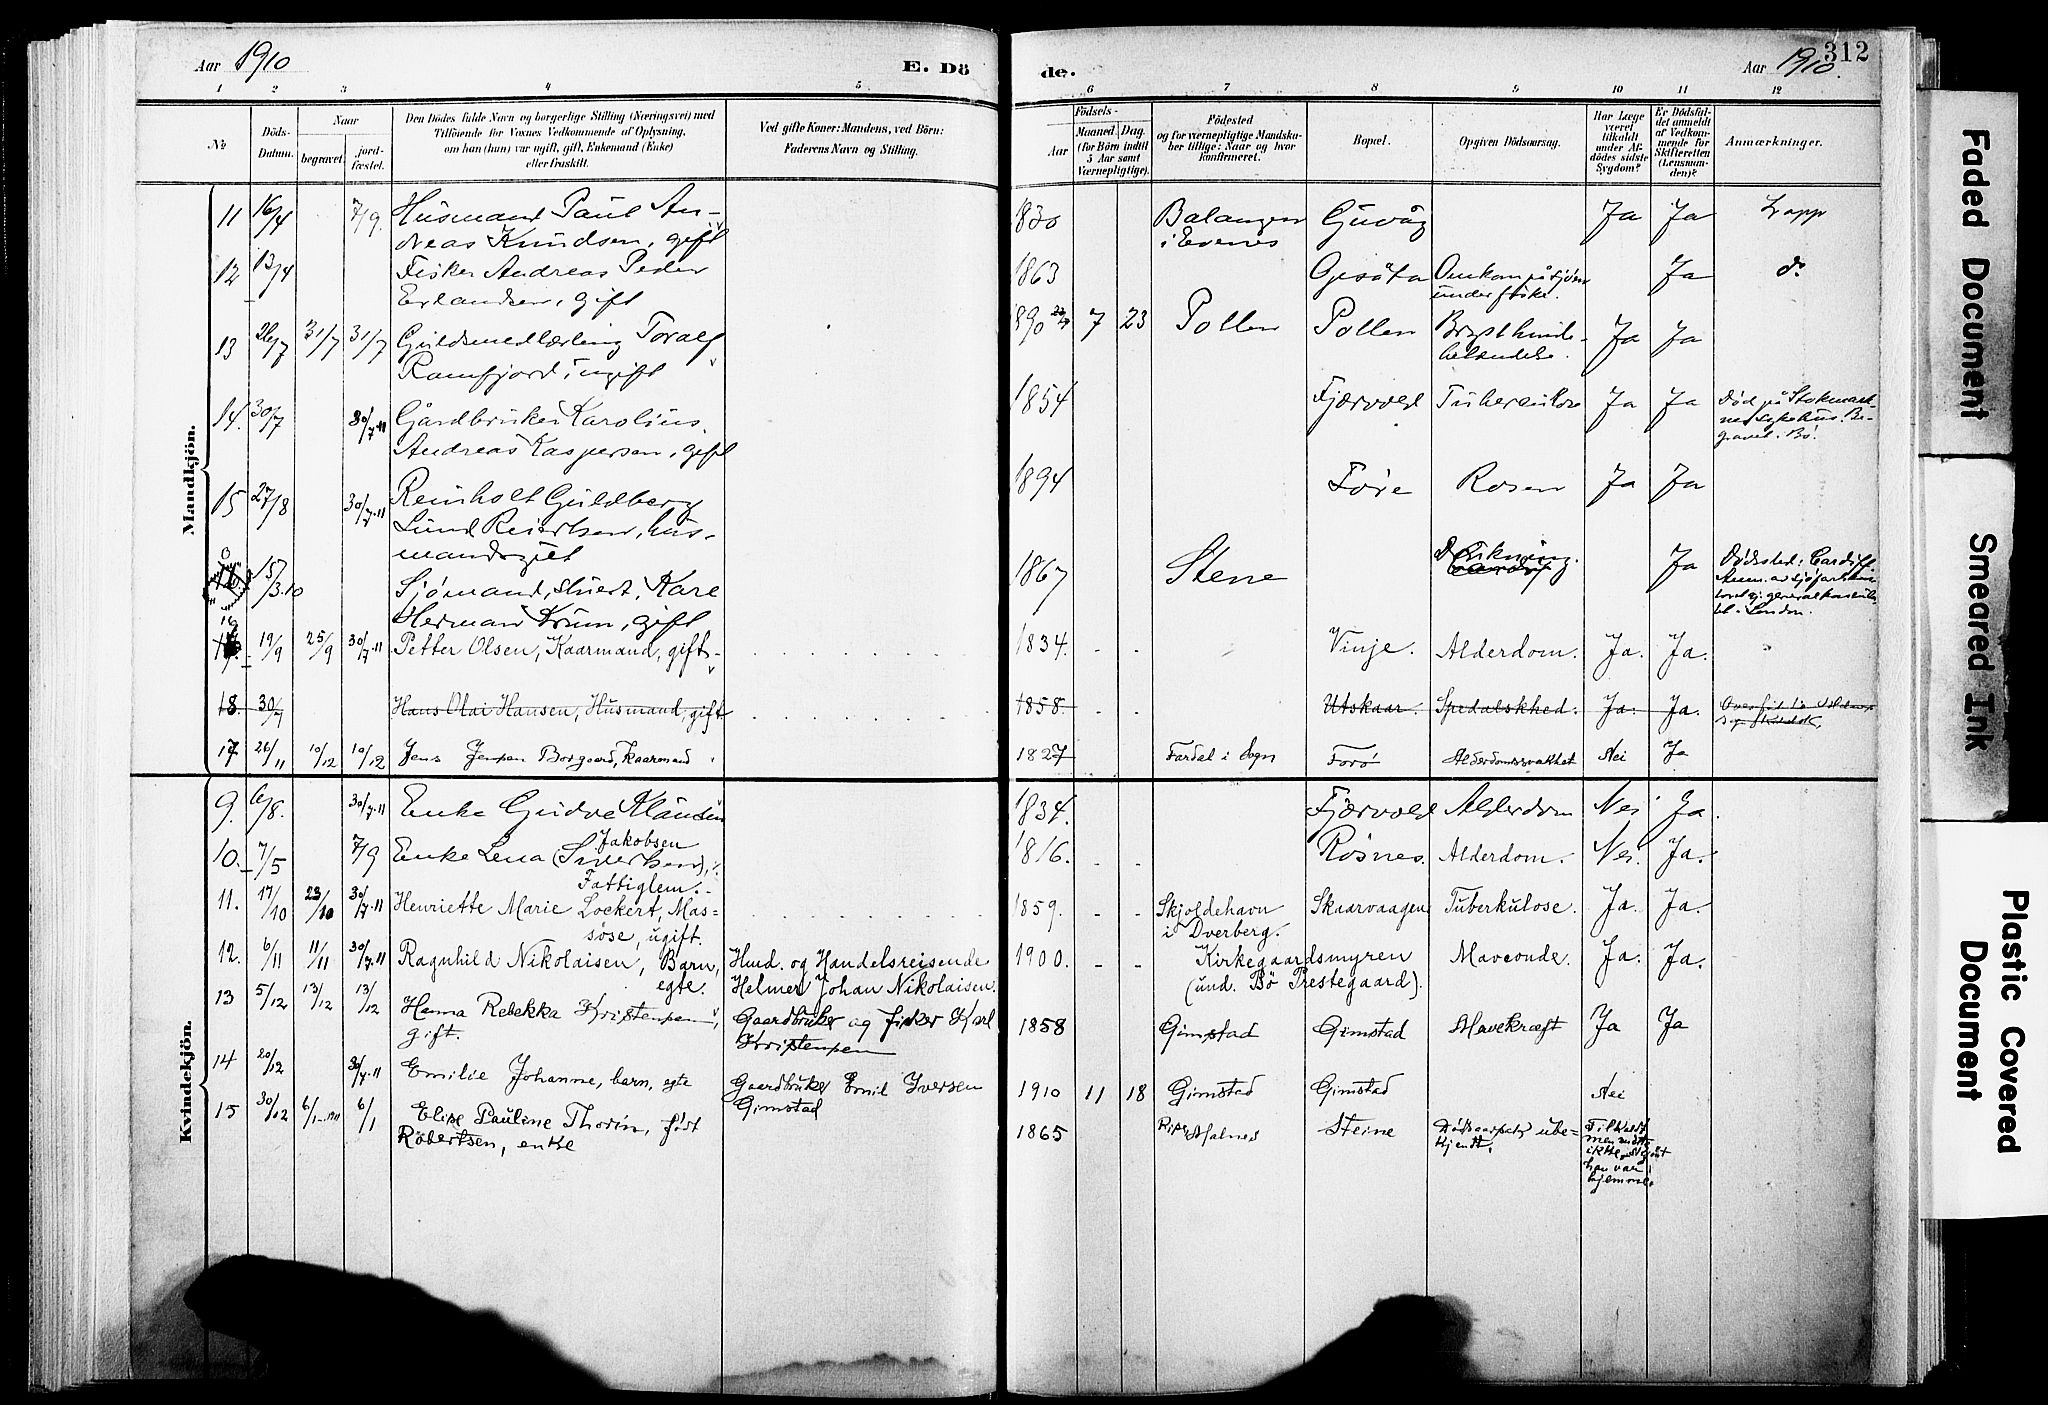 Aar 1910
E. Dö
de.
Aar 1910.
312
1 2 3 4 5 6 7 8 9 10 11 12
№
Döds-
Datum.
Naar
begravet.
jord-
fæstet.
Den Dödes fulde Navn og borgerlige Stilling (Næringsvei) med
Tilföiende for Voxnes Vedkommende af Oplysning,
om han (hun) var ugift, gift, Enkemand (Enke)
eller fraskilt.
Ved gifte Koner: Mandens, ved Börn:
Faderens Navn og Stilling.
Födsels-
Aar
Maaned. Dag.
(for Börn indtil
5 Aar samt
Værnepligtige).
Födested
og for værnepligtige Mandska-
ber tillige: Naar og hvor
konfirmeret.
Bopæl.
Opgiven Dödsaarsag.
Har Læge
været
tilkaldt
under Af-
dödes sidste
Sygdom?
Er Dödsfal-
det anmeldt
af Vedkom-
mende for
Skifteretten
(Lensman-
den)?
Anmærkninger.
Mandkjön.
11 16/4 7/9. Husmand Paul An-
dreas Knudsen, gift
1830 Balangen
i Evenes
Guvåg Ja Ja Lapp
12 13/4 Fisker Andreas Peder
Erlandsen, gift
1863 Omkom på sjøen
under fiske.
Ja do
13 26/7 31/7 31/7 Guldsmedlærling Toralf
Ramfjord, ugift
1890 7 23 Pollen Pollen Brysthinde-
betændelse.
Ja Ja
14. 30/7 30/7-11 Gårdbruker Karolius
Andreas Kaspersen, gift
1854 Fjærvold Tuberculose Ja Ja Død på Stokmark-
nes sykehus. Be-
gravet i Bø.
15 27/8 30/7-11 Reinholt Guldberg
Lund Reiertsen, hus-
mandsgut
1894 Føre Rosen Ja Ja
15/3.10 Sjømand, stuert, Karl
Herman Krum, gift
1867 Steine Drukning. Ja Dødssted: Cardiff
16 19/9 25/9 30/7-11 Petter Olsen, Kaarmand, gift
1834. Vinje. Alderdom. Ja. Ja.
18. 30/7 Hans Olai Hansen, Husmand, gift
1858. Utskaar. Spedalskhed. Ja. Ja.
17 26/11 10/12 10/12 Jens Jensen Borgaard, Kaarmand
1827 Fardal i Sogn Forö Alderdomssvakhet Nei Ja
Kvindekjön.
9. 6/8. 30/7-11 Enke Gudve Klausen
1834. Fjærvold Alderdom Nei Ja.
10. 7/5 7/9 Enke Lena (Sivertsen), Jakobsen
Fattiglem.
1816. Røsnes. Alderdom. Nei. Ja.
11. 17/10 23/10 30/7-11 Henriette Marie Lockert, Mas-
søse, ugift.
1859. Skjoldehavn
i Dverberg.
Skaarvaagen Tuberkulose. Ja. Ja.
12. 6/11 11/11 30/7-11 Ragnhild Nikolaisen, Barn,
egte.
Hmd. og Handelsreisende
Helmer Johan Nikolaisen.
1900. Kirkegaardsmyren
(und. Bö Prestegaard).
Maveonde. Ja. Ja.
13 5/12 13/12 13/12 Hanna Rebekka Kristensen,
gift.
Gaardbruker og fisker Karl
Kristensen
1858 Gimstad Gimstad Mavekræft Ja Ja
14 20/12 30/7-11 Emilie Johanne, barn, egte
Gaardbruker Emil Iversen
Gimstad
1910 11 18 Gimstad Gimstad Nei
15 30/12 6/1-1911 6/1 Elise Pauline Thorin, født
Robertsen, enke
1865 Malnes Steine Dödsaarsak ube-
kjendt.
Tilkaldt
men
ikke
han var
hjemme.
Faded Document
Smeared Ink
Plastic Covered
Document